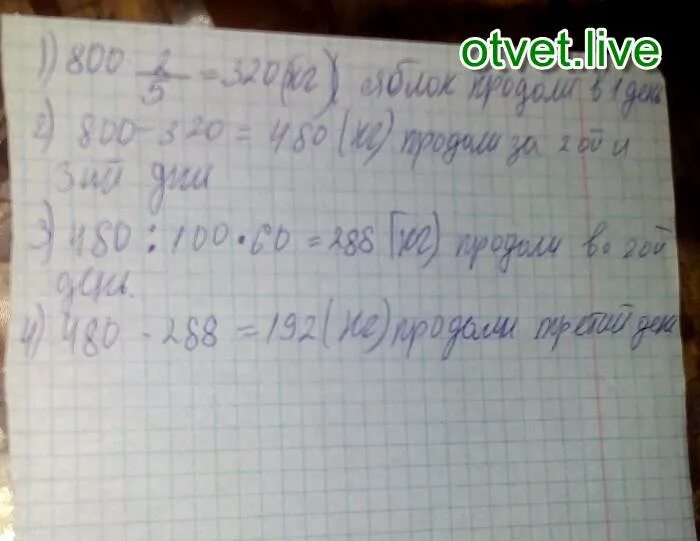 otvet.live
1) 800 2/5 = 320 (кг) яблок продали в 1 день
2) 800 - 320 = 480 (кг) продали за 2ой и
3ий дни
3) 480 : 100 • 60 = 288 (кг) продали во 2ой
день.
4) 480 - 288 = 192 (кг) продали третий день